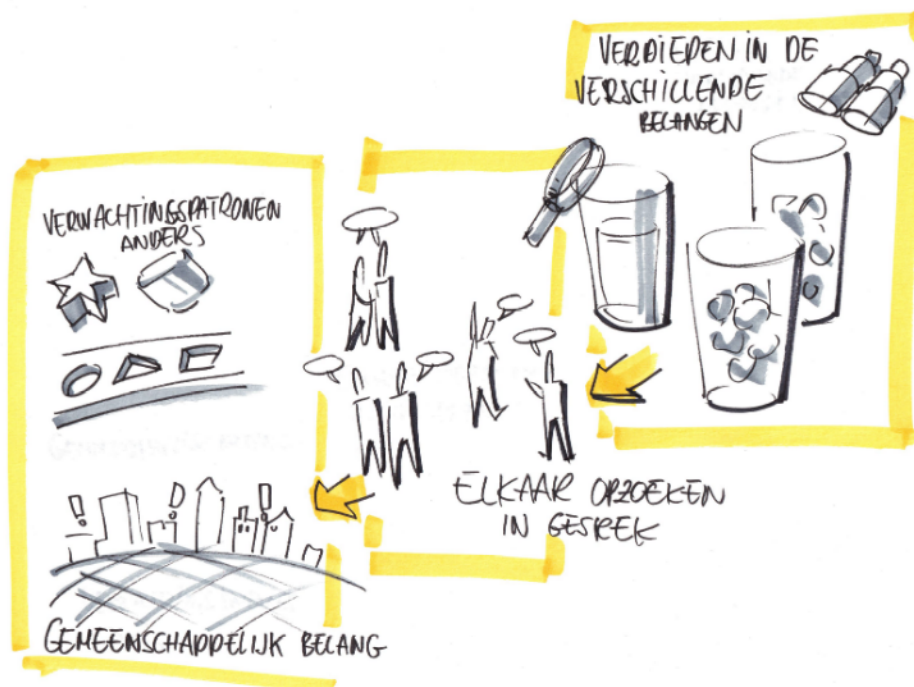 VERDIEPEN IN DE
VERSCHILLENDE
BELANGEN
VERWACHTINGSPATRONEN
ANDERS
ELKAAR OPZOEKEN
IN GESPREK
GEMEENSCHAPPELIJK BELANG